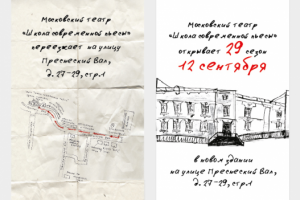 Московский театр
«Школа современной пьесы»
переезжает на улицу
Пресненский Вал,
д. 27-29, стр.1
Московский театр
«Школа современной пьесы»
открывает 29 сезон
12 сентября
в новом здании
на улице Пресненский Вал,
д. 27-29, стр.1